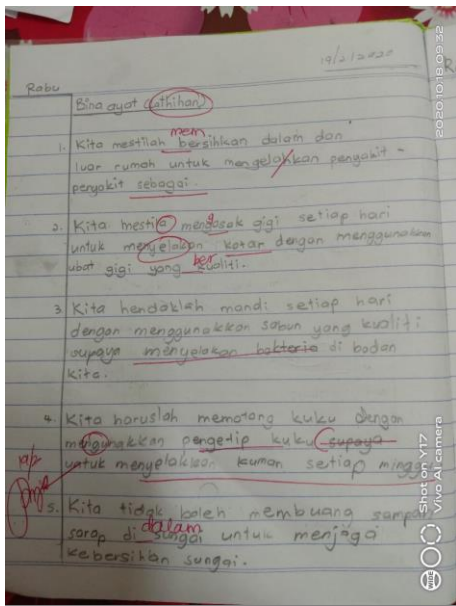 19/2/2020
Rabu
Bina ayat (athihan)
mem
1. Kita mestilah bersihkan dalam dan
luar rumah untuk mengelakkan penyakit -
penyakit sebagai.
2. Kita mestila mengosak gigi setiap hari
g
untuk menyelakan kotor dengan menggunakan
ber
ubat gigi yang kualiti.
3 Kita hendaklah mandi setiap hari
dengan menggunakkan sabun yang kualiti
supaya menyelakan bakteria di badan
kita.
4. Kita haruslah memotong kuku dengan
mengunakkan pengetip kuku supaya
19/2
untuk menyelakkan kuman setiap minggu
5. Kita tidak boleh membuang sampah
sarap di sungai untuk menjaga
dalam
kebersihan sungai.
20201018 09:32
Shot on Y17
Vivo AI camera
WIDE